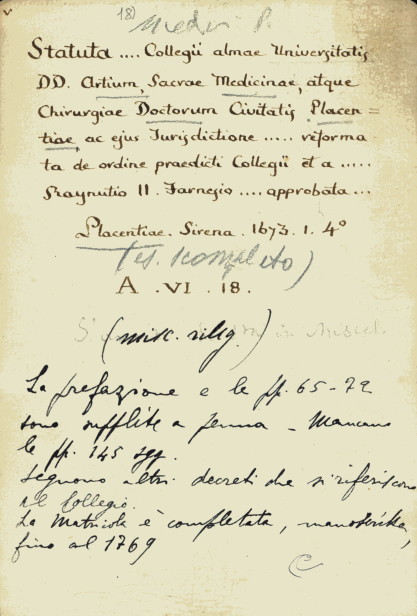 18)
Medici P.
Statuta .... Collegii almae Universitatis
DD. Artium, Sacrae Medicinae, atque
Chirurgiae Doctorum Civitatis Placen=
tiae, ac ejus Jurisdictione ..... reforma
ta de ordine praedicti Collegii et a .....
Raynutio II. Farnesio .... approbata ...
Placentiae. Sirena. 1673. 1. 4°
A . VI . 18.
(misc. rileg.)
La prefazione e le pp. 65-72
sono supplite a penna - Mancano
le pp. 145 sgg.
Seguono altri decreti che si riferiscono
al Collegio.
La Matricola è completata, manoscritta,
fino al 1769